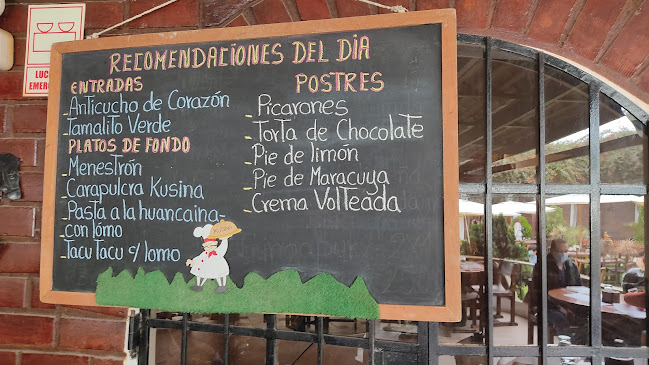 RECOMENDACIONES DEL DIA
ENTRADAS
_Anticucho de Corazón
_Tamalito Verde
PLATOS DE FONDO
_Menestrón
_Carapulcra Kusina
_Pasta a la huancaina_
_con lomo
_Tacu Tacu c/ lomo
POSTRES
_Picarones
_Torta de Chocolate
_Pie de limón
_Pie de Maracuya
_Crema Volteada
LUC
EMERG